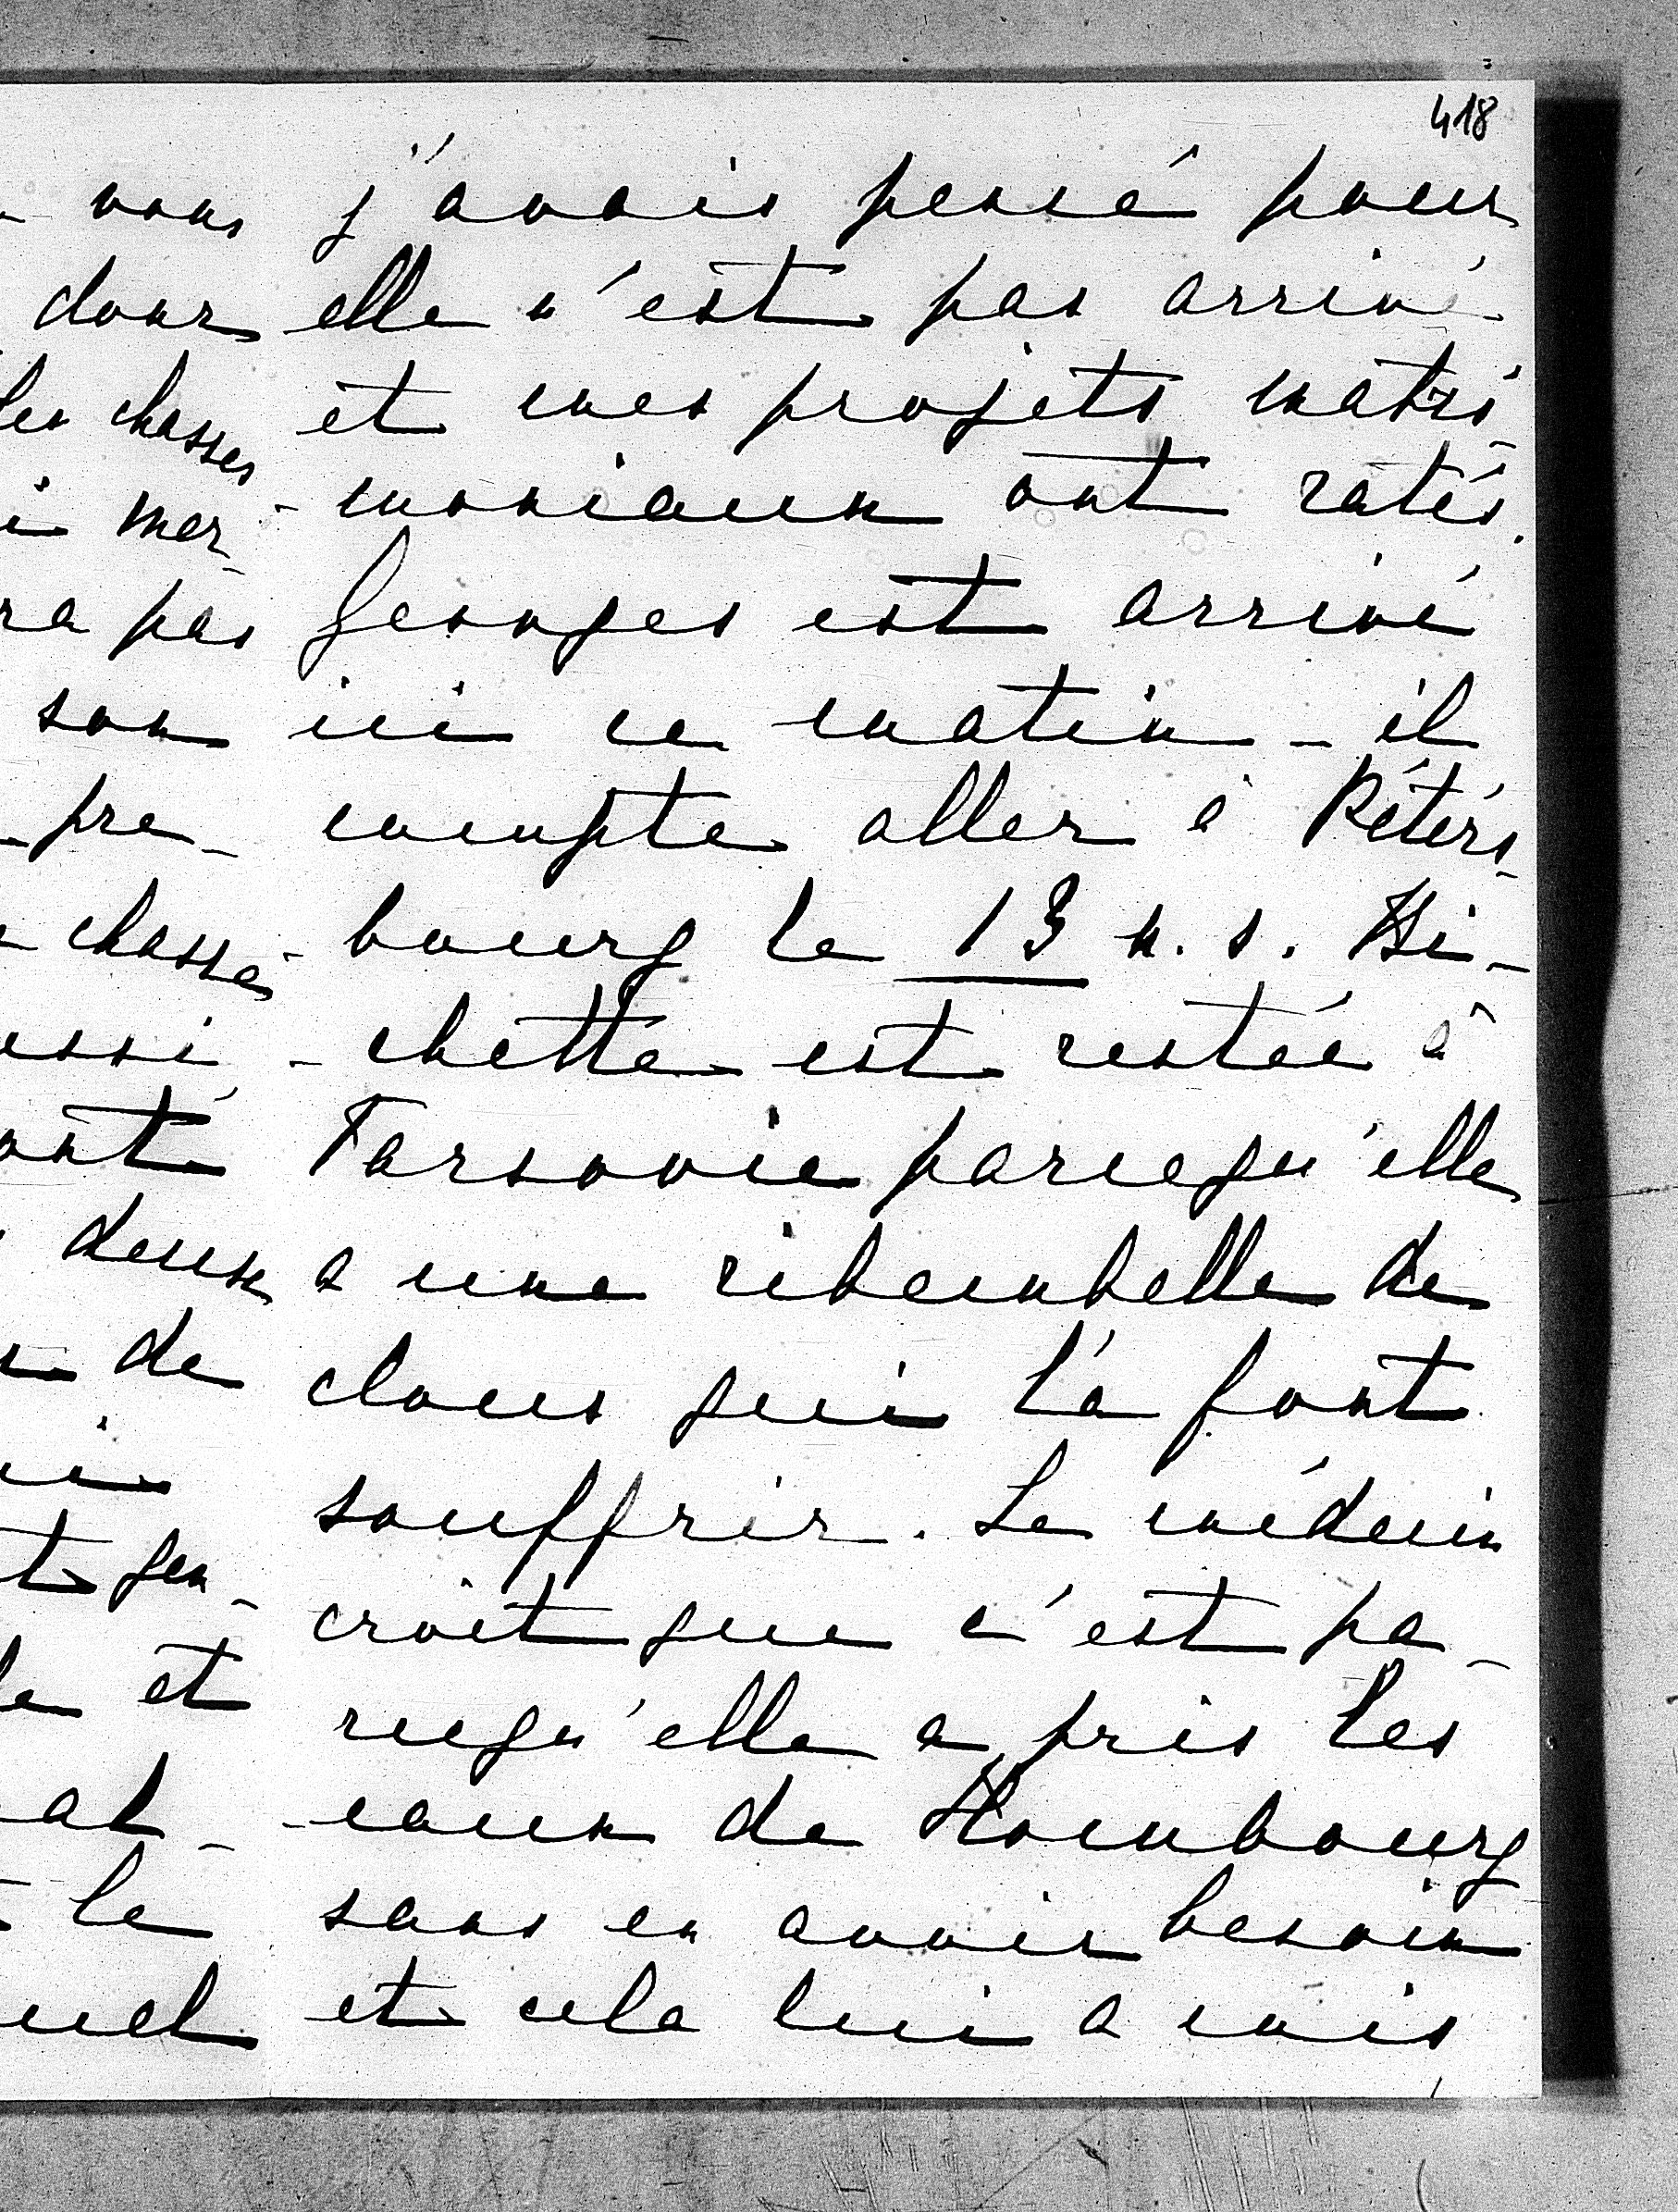 418
vous
dour
les chasses
i mer-
ra pas
son
pre-
chasse
ussi
ont
deux
de
ci
t gen-
le et
al-
le
uel
j'avais pensé pour
elle n'est pas arrivé
et mes projets matri-
-moniaux ont ratés.
Georges est arrivé
ici ce matin - il
compte aller à Péters-
-bourg le 13 n. s. Bi-
-chette est restée à
Varsovie parcequ'elle
a une ribambelle de
clous qui la font
souffrir. Le médecin
croit que c'est pa-
rcequ'elle a pris les
-eaux de Hombourg
sans en avoir besoin
et cela lui a mis